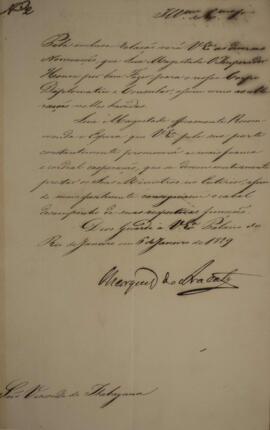 Nº 2
Illmo e Exmo Snr
Pela inclusa relação verá V Exª as diversas
Nomeações que Sua Magestade O Imperador
Houve por bem fazer para o nosso Corpo
Diplomatico e Consular, assim como as alte-
rações nelles havidas.
Sua Magestade
e Espera que V Exª pela sua parte
constantemente promova a mais franca
e cordial cooperação, que se devem mutuamente
prestar os Seus Ministros no Exterior, afim
de conseguirem o cabal
desempenho de suas respectivas funcções.
Deos Guarde a V Exª Palacio do
Rio de Janeiro em 6 de Janeiro de 1829
Marquez do Aracaty
Snr Visconde de Itabayana